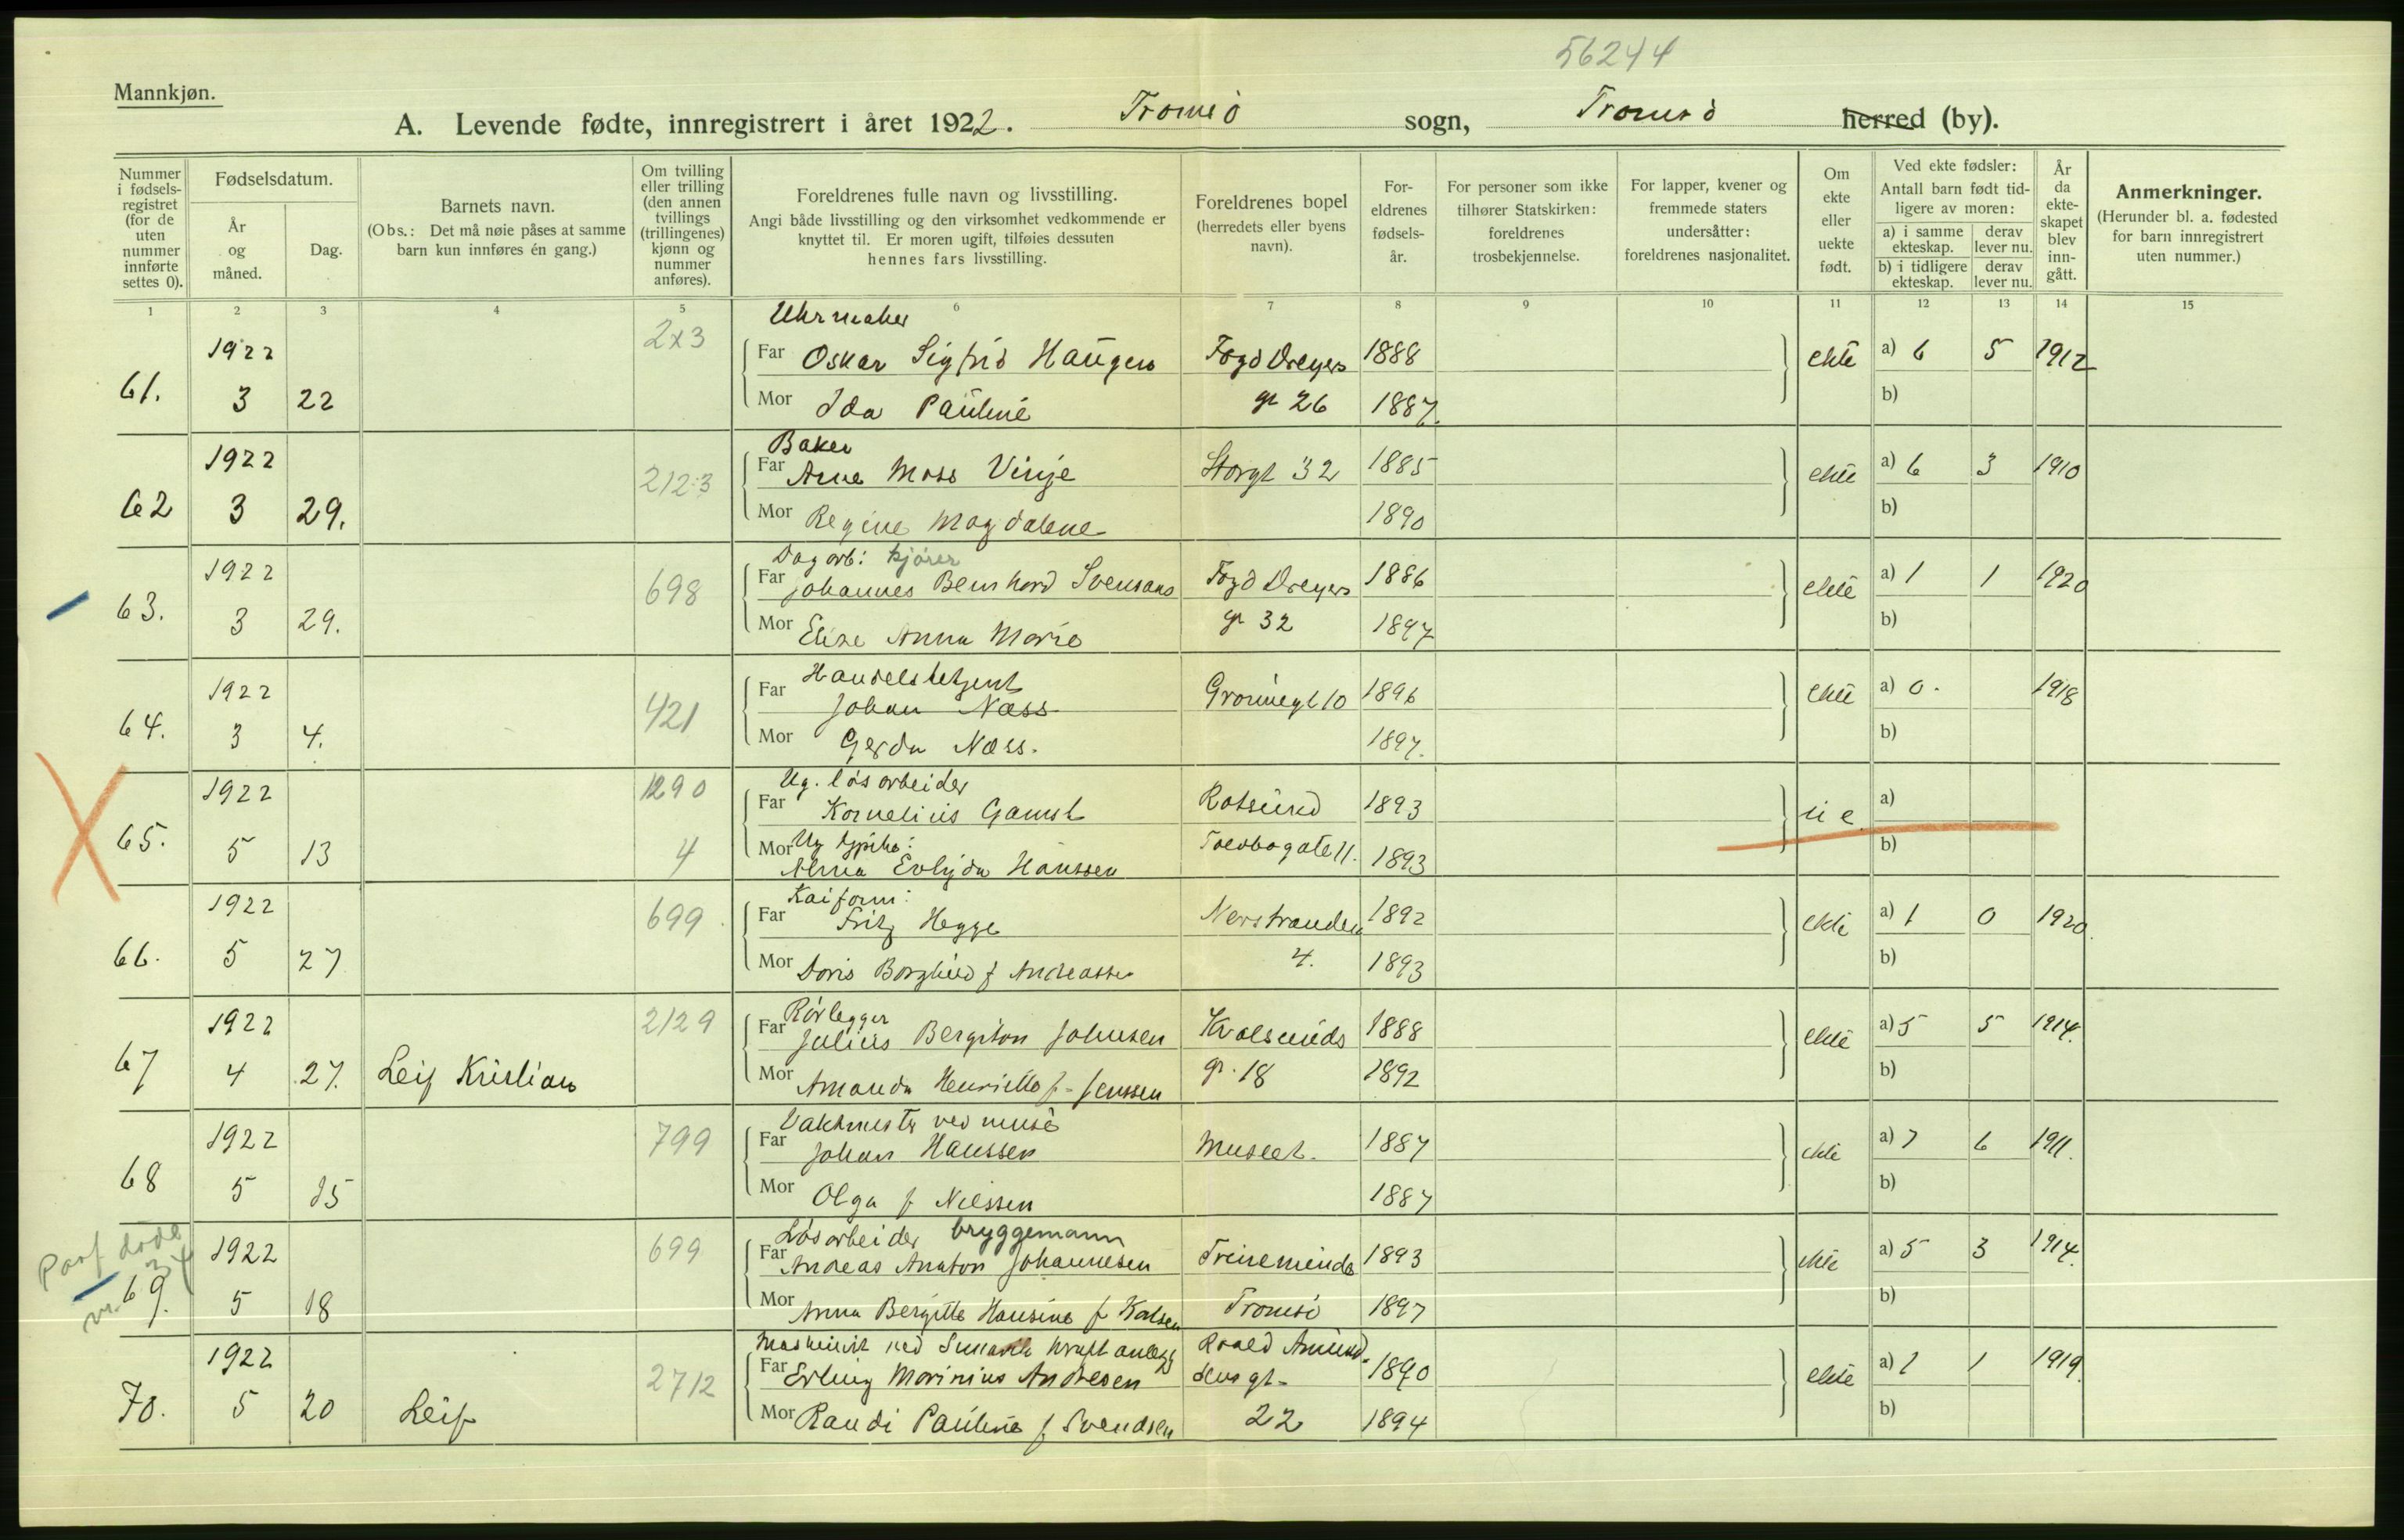 56244
Mannkjøn.
A. Levende fødte, innregistrert i året 1922. Tromsö sogn, Tromsö herred (by).
Nummer i fødsels-registret (for de uten nummer innførte settes 0).
Fødselsdatum.
År og måned.
Dag.
Barnets navn.
(Obs.: Det må nøie påses at samme barn kun innføres én gang.)
Om tvilling eller trilling (den annen tvillings (trillingenes) kjønn og nummer anføres).
Foreldrenes fulle navn og livsstilling.
Angi både livsstilling og den virksomhet vedkommende er knyttet til. Er moren ugift, tilføies dessuten hennes fars livsstilling.
Foreldrenes bopel (herredets eller byens navn).
For-eldrenes fødsels-år.
For personer som ikke tilhører Statskirken: foreldrenes trosbekjennelse.
For lapper, kvener og fremmede staters undersåtter: foreldrenes nasjonalitet.
Om ekte eller uekte født.
Ved ekte fødsler:
Antall barn født tid-ligere av moren:
a) i samme ekteskap.
derav lever nu.
b) i tidligere ekteskap.
derav lever nu.
År da ekte-skapet blev inn-gått.
Anmerkninger.
(Herunder bl. a. fødested for barn innregistrert uten nummer.)
1 2 3 4 5 6 7 8 9 10 11 12 13 14 15
Uhrmaker
61. 1922 3 22 2x3 Far Oskar Sigfrid Haugen Fogd Dreyers 1888 ekte a) 6 5 1912
Mor Ida Pauline gt 26 1887. b)
Baker
62 1922 3 29. 212:3 Far Arne Moss Vinje Storgt 32 1885 ekte a) 6 3 1910
Mor Regine Magdalene 1890 b)
Dagarb: kjører
63. 1922 3 29. 698 Far Johannes Bernhard Svensens Fogd Dreyers 1886 ekte a) 1 1 1920
Mor Elise Anna Marie gt 32 1897 b)
Handelsbetjent
64. 1922 3 4. 421 Far Johan Næss Grönnegt 10 1896 ekte a) 0. 1918
Mor Gerda Næss. 1897. b)
Ug. løsarbeider
65. 1922 5 13 1290 Far Kornelius Gamst Rotsund 1893 u e. a)
4 Mor Ug tjpike: Toldbogate 11. 1893 b)
Alma Evlyda Hanssen
Kaiform:
66. 1922 5 27 699 Far Fritz Hegge Nerstranden 1892 ekte a) 1 0 1920.
Mor Doris Borghild f Andreassen 4. 1893 b)
Rörlegger
67 1922 4 27. Leif Kristian 2129 Far Julius Bergiton Johnsen Kvalsunds 1888 ekte a) 5 5 1914.
Mor Amanda Henriette f- Jenssen gt. 18 1892 b)
Vaktmester ved museé
68 1922 5 15 799 Far Johan Hanssen Museet. 1887 ekte a) 7 6 1911.
Mor Olga f Nilssen 1887 b)
Løsarbeider bryggemann
69. 1922 5 18 699 Far Andreas Anaton Johannesen 1893 ekte a) 5 3 1914.
Mor Anna Bergitte Hansine f Karlsen Tromsö 1897 b)
Maskinist ved kraftanlegg Roald Amund-
70. 1922 5 20 Leif 2712 Far Erling Marinius Andresen sens gt- 1890 ekte a) 1 1 1919.
Mor Randi Pauline f Svendsen 22 1894 b)